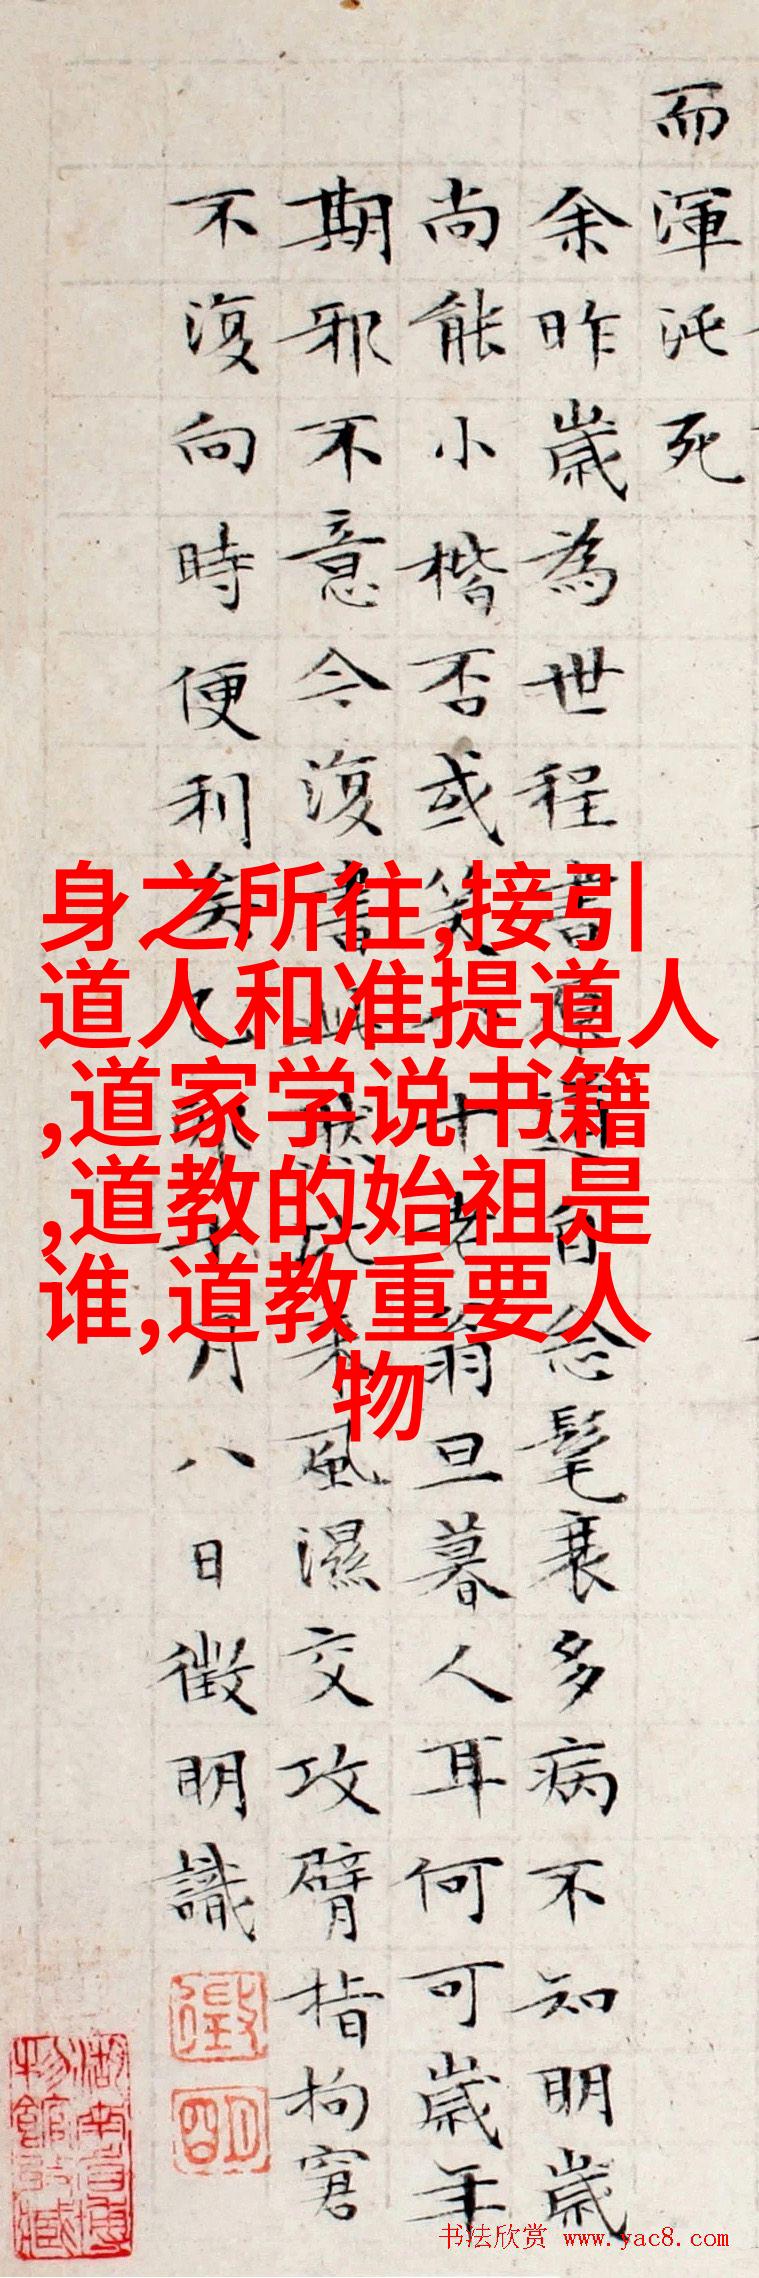 而渾沌死
余昨歲為世程書適自念髦衰多病不知明歲
尚能小楷否或笑十老翁旦暮人耳何可歲年
期邪不意今復書此然比來風濕交攻臂指拘窘
不復向時便利矣十月八日徵明識
徵明
湖南省博物館收藏
身之所往,接引
道人和准提道人
,道家学说书籍
,道教的始祖是
谁,道教重要人
物
书法欣赏 www.yac8.com